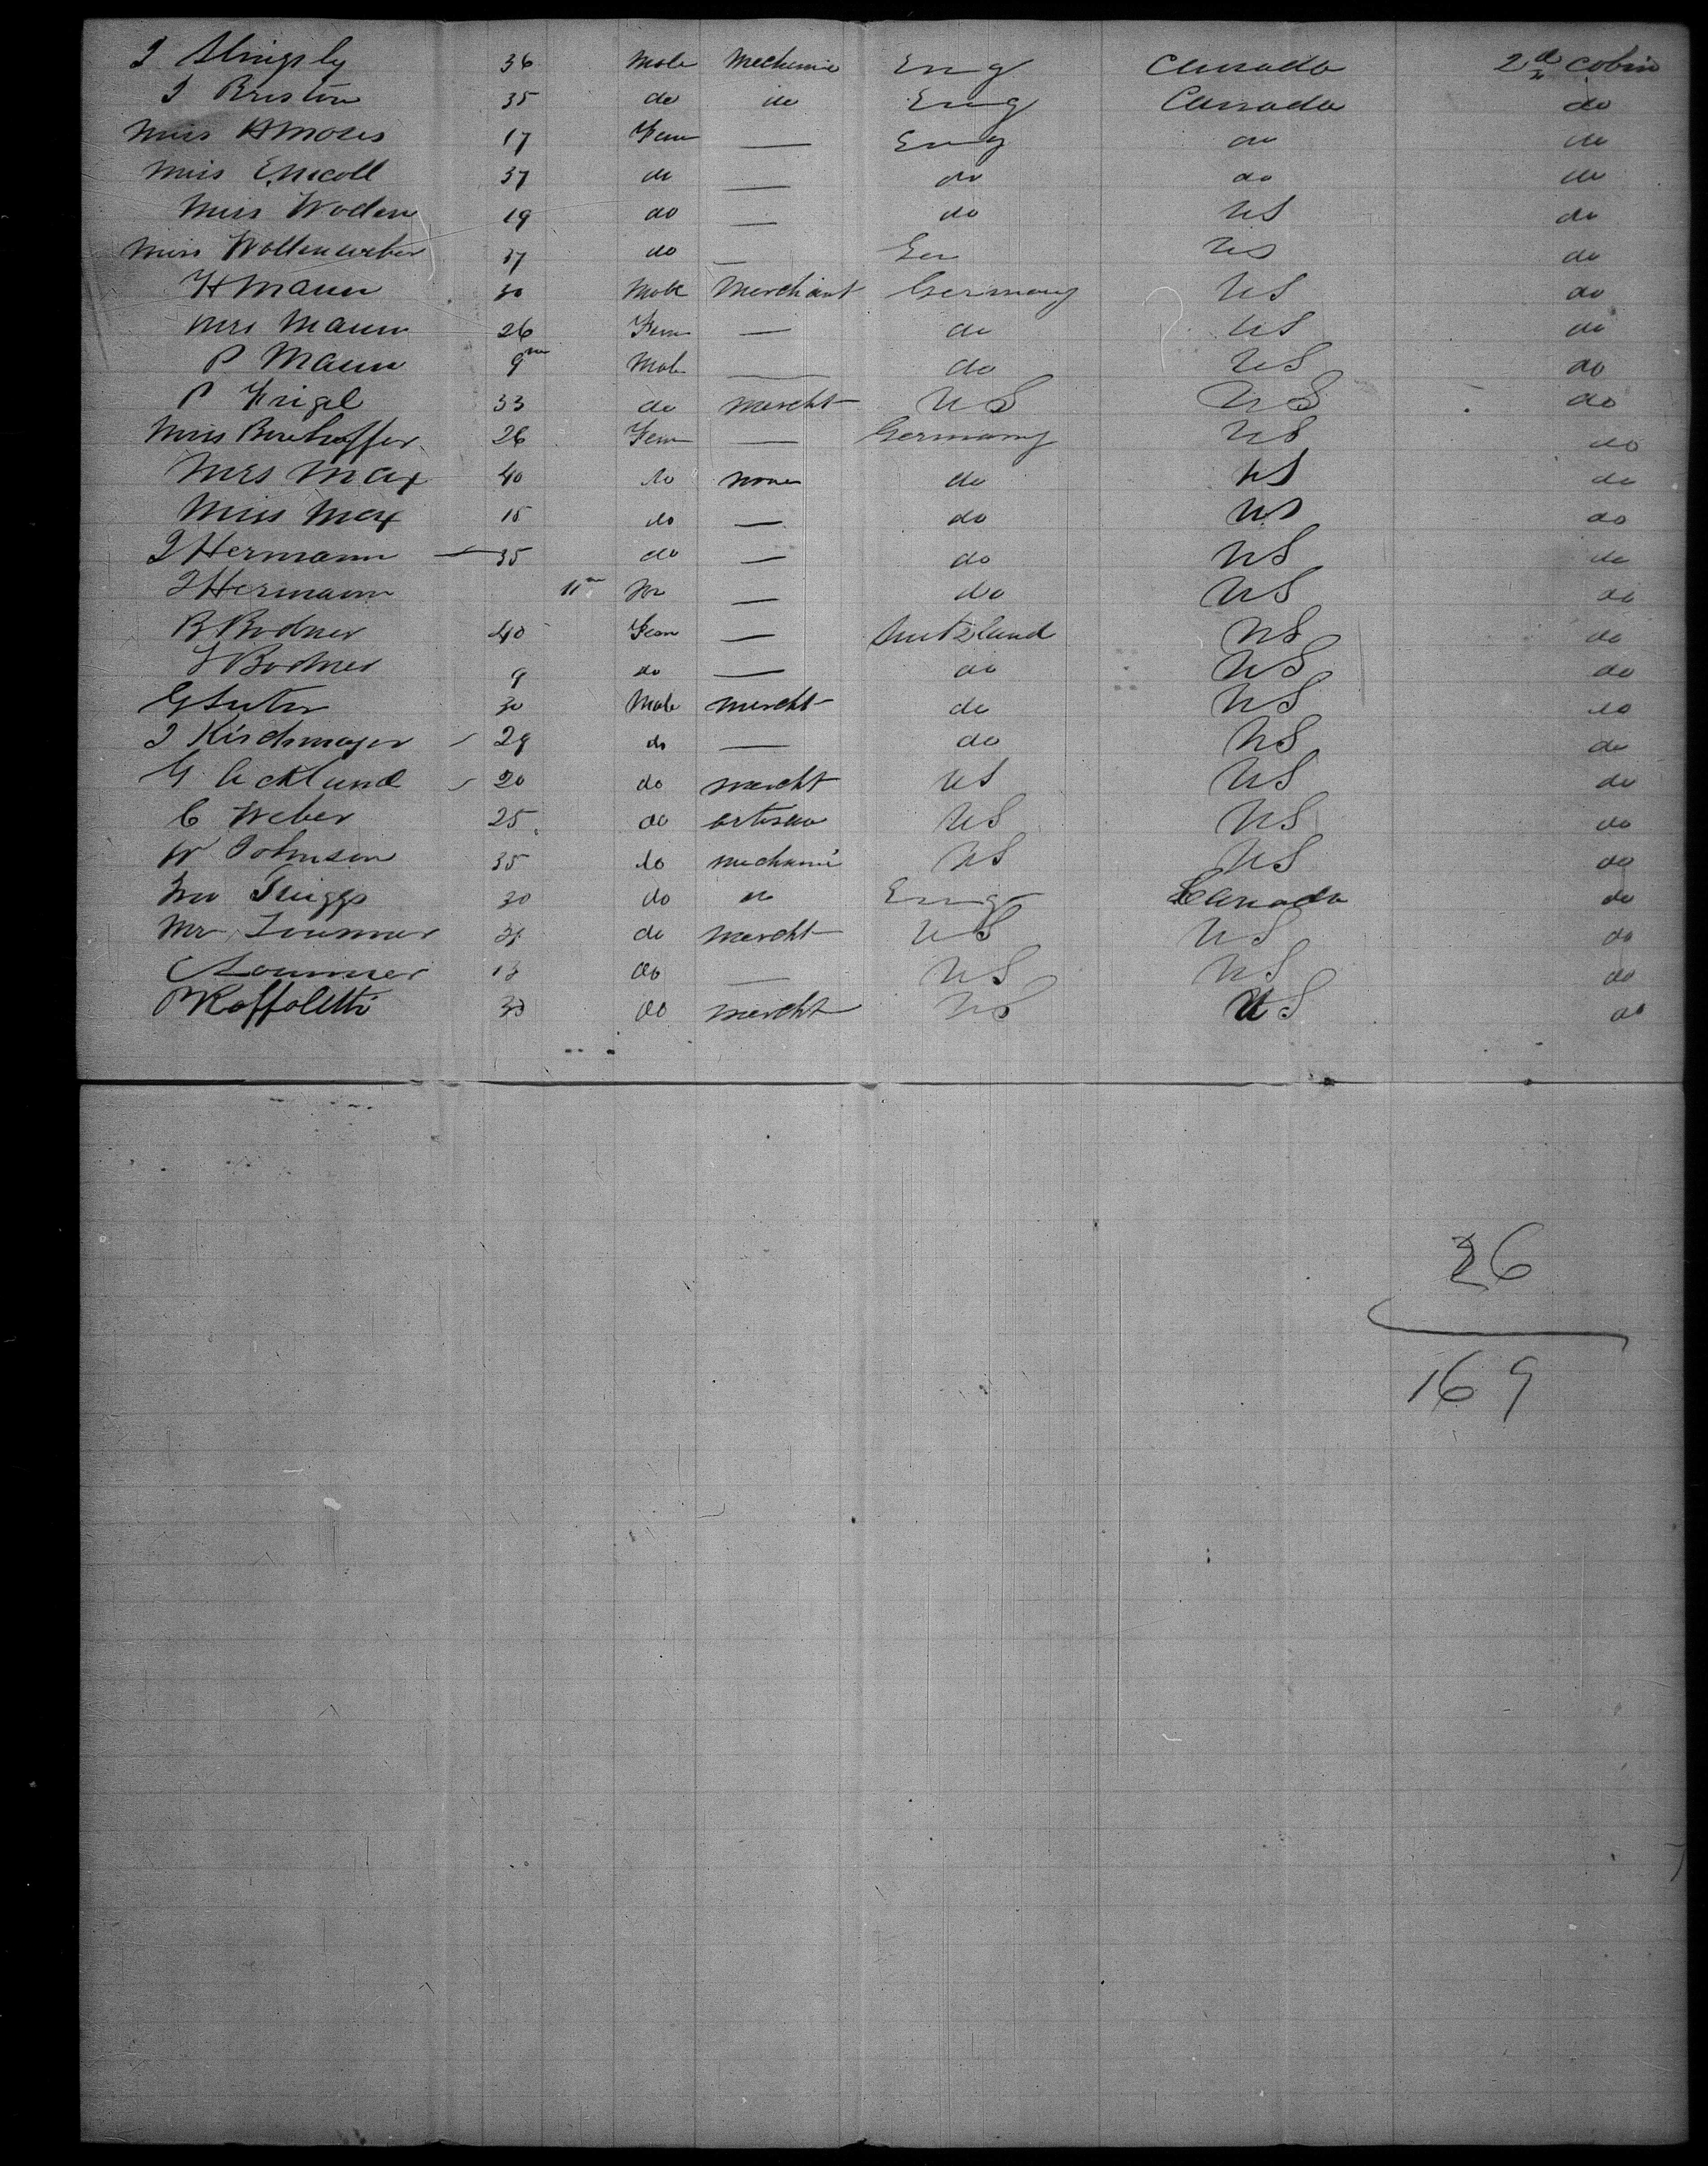 J Slingsby 36 Male Mechanic Eng Canada 2nd Cabin
J Briston 35 do do Eng Canada do
Miss H Moses 17 Fem — Eng do do
Miss E Nicoll 37 do — do do do
Miss Woden 19 do — do US do
Miss Wollenweber 17 do — Ger US do
H Mann 30 Male Merchant Germany US do
Mrs Mann 26 Fem — do US do
P Mann 9m Male — do US do
P 33 do mercht US US do
Miss 26 Fem — Germany US do
Mrs Max 40 do none do US do
Miss Max 15 do — do US do
J Hermann 35 do — do US do
J Hermann 11m — do US do
B Bodmer 40 Fem — Switzland US do
J Bodmer 9 do — do US do
G Suter 30 Male mercht do US do
J Kirchmayer 29 do — do US do
G Ackland 20 do mercht US US do
C Weber 25 do artisan US US do
W Johnson 35 do mechanic US US do
30 do do Eng Canada do
Mr do mercht US US do
13 do — US US do
P Koffoletti 30 do mercht US US do
26
169